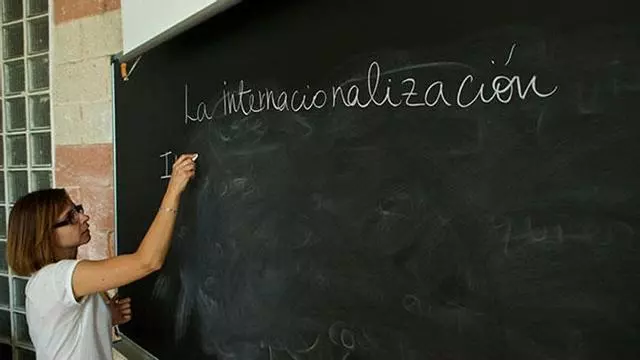 La internacionalización
I